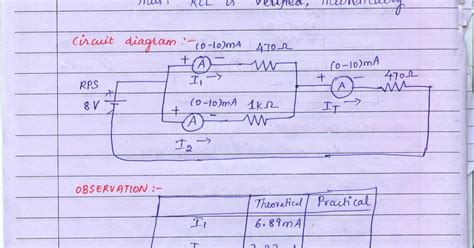 must KCL is verified, theoretically
Circuit diagram :-
(0-10)mA 470Ω
+ A -
I₁ →
RPS
8V
+
(0-10)mA 1kΩ
+ A -
I₂ →
(0-10)mA 470Ω
+ A -
I_T →
OBSERVATION :-
Theoretical Practical
I₁ 6.89mA